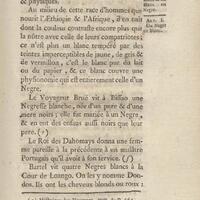 & physiques.
Au milieu de cette race d'hommes que
nourrit l'Ethiopie & l'Afrique, il en naît
dont la couleur contraste encore plus que
la nôtre avec celle de leurs compatriotes:
ce n'est plus un blanc tempéré par des
teintes imperceptibles de jaune, de gris &
de vermillon, c'est le blanc pur du lait
ou du papier, & ce blanc couvre une
physionomie qui est entièrement celle du
Nègre.
Le Voyageur Bruë vit à Bissao une
Negresse blanche, née d'un pere & d'une
mere noirs; elle fut mariée à un Negre,
& en eut des enfans aussi noirs que leur
pere. (*)
Le Roi des Dahomays donna une fem-
me pareille à la précédente à un militaire
Portugais qu'il avoit à son service. (f)
Bartel vit quatre Negres blancs à la
Cour de Loango. On les y nomme Don-
dos. Ils ont les cheveux blonds ou roux: